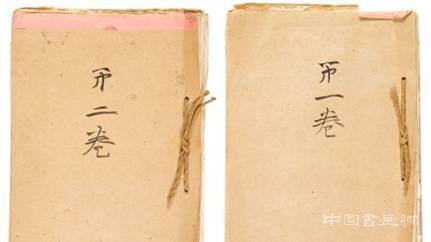 第一卷
第二卷
中国書画網